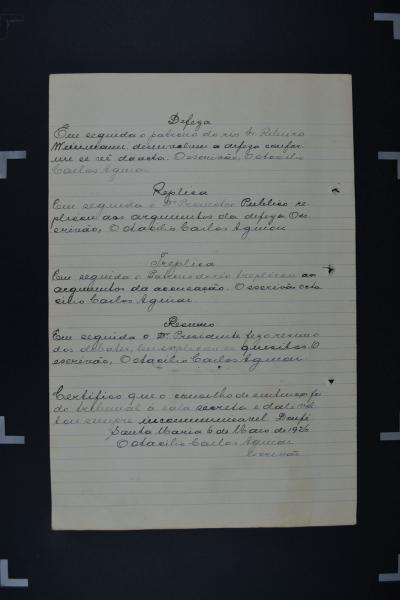 Defeza
Em seguida o patrono do reo Dr Ribeiro
Weinmann. desenvolveu a defeza confor-
me se vê da acta. O escrivão, Octacilio
Carlos Aguiar
Replica
Em seguida o Dr Promotor Publico re-
plicou aos argumentos da defeza O es-
crivão, Octacilio Carlos Aguiar
Treplica
Em seguida o Patrono do réo treplicou ao
argumentos da accusação. O escrivão Octa
cilio Carlos Aguiar
Resumo
Em seguida o Dr. Presidente fez o resumo
dos debates, e quesitos. O
escrivão, Octacilio Carlos Aguiar
Certifico que o conselho de sentença foi
do tribunal á sala secreta e dali vol
tou sempre incommunicavel Dou fé
Santa Maria 6 de Maio de 1926
Octacilio Carlos Aguiar
Escrivão